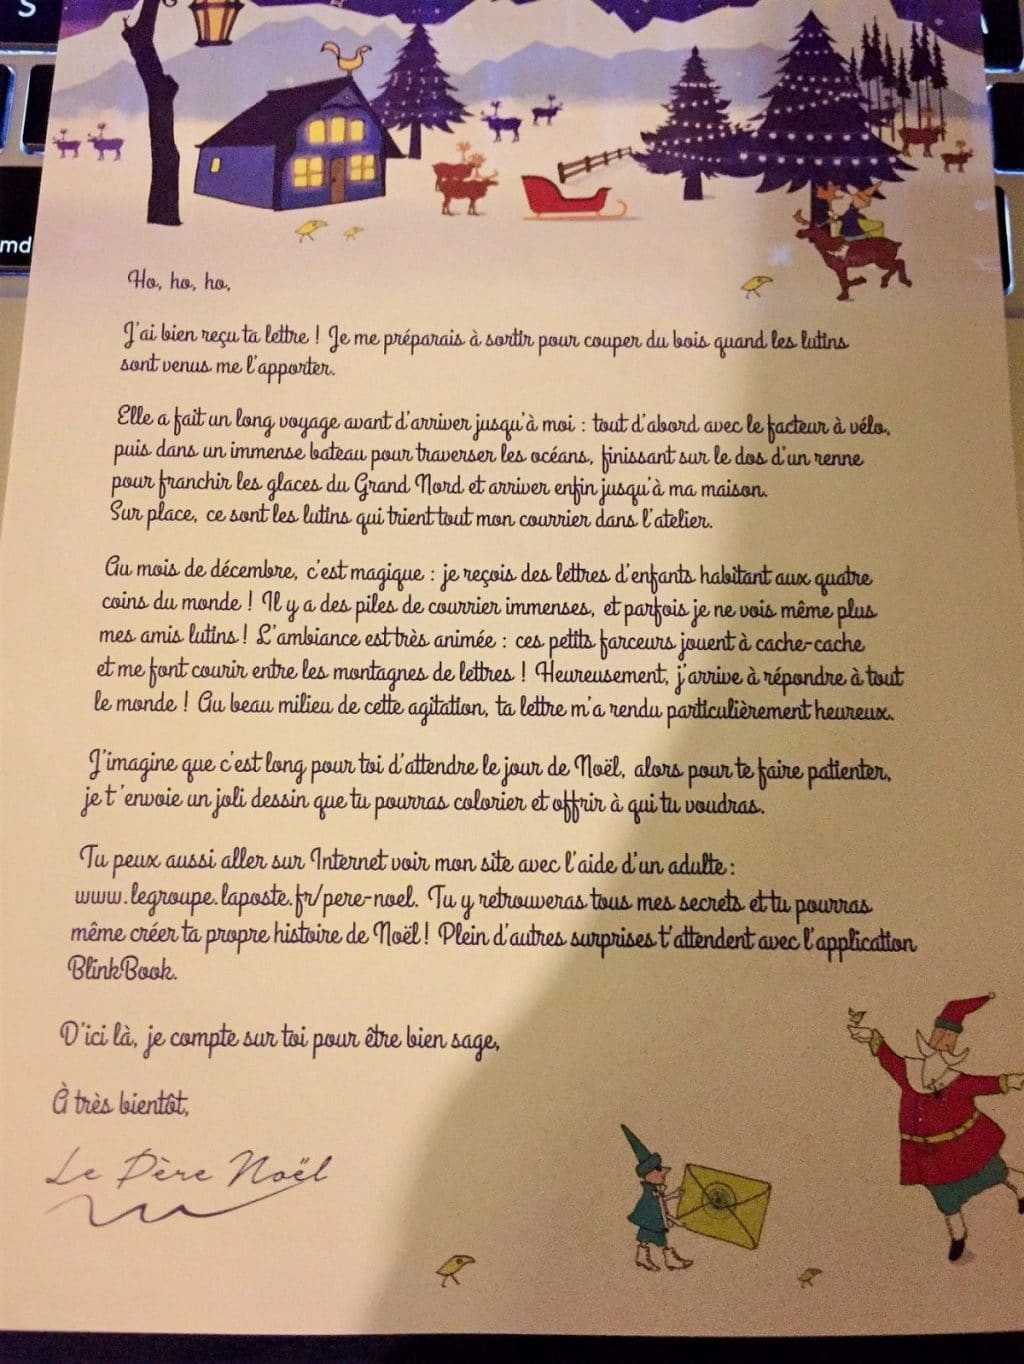 S
md
Ho, ho, ho,
J'ai bien reçu ta lettre ! Je me préparais à sortir pour couper du bois quand les lutins
sont venus me l'apporter.
Elle a fait un long voyage avant d'arriver jusqu'à moi : tout d'abord avec le facteur à vélo,
puis dans un immense bateau pour traverser les océans, finissant sur le dos d'un renne
pour franchir les glaces du Grand Nord et arriver enfin jusqu'à ma maison.
Sur place, ce sont les lutins qui trient tout mon courrier dans l'atelier.
Au mois de décembre, c'est magique : je reçois des lettres d'enfants habitant aux quatre
coins du monde ! Il y a des piles de courrier immenses, et parfois je ne vois même plus
mes amis lutins ! L'ambiance est très animée : ces petits farceurs jouent à cache-cache
et me font courir entre les montagnes de lettres ! Heureusement, j'arrive à répondre à tout
le monde ! Au beau milieu de cette agitation, ta lettre m'a rendu particulièrement heureux.
J'imagine que c'est long pour toi d'attendre le jour de Noël, alors pour te faire patienter,
je t'envoie un joli dessin que tu pourras colorier et offrir à qui tu voudras.
Tu peux aussi aller sur Internet voir mon site avec l'aide d'un adulte :
www.legroupe.laposte.fr/pere-noel. Tu y retrouveras tous mes secrets et tu pourras
même créer ta propre histoire de Noël ! Plein d'autres surprises t'attendent avec l'application
BlinkBook.
D'ici là, je compte sur toi pour être bien sage,
À très bientôt,
Le Père Noël